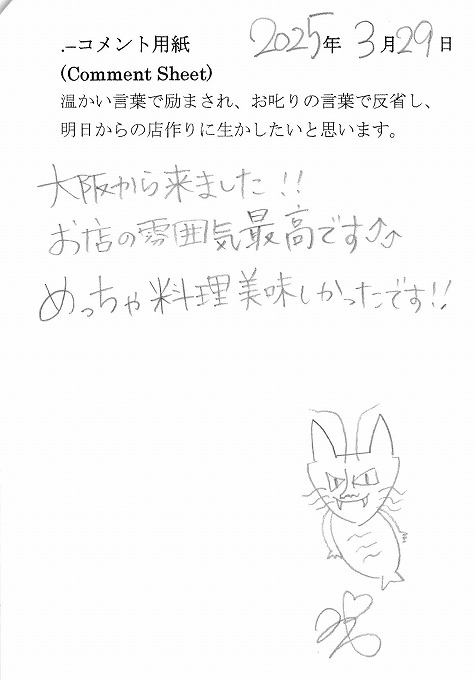 .–コメント用紙 2025年 3月29日
(Comment Sheet)
温かい言葉で励まされ、お叱りの言葉で反省し、
明日からの店作りに生かしたいと思います。
大阪から来ました!!
お店の雰囲気最高です⤴⤴
めっちゃ料理美味しかったです!!